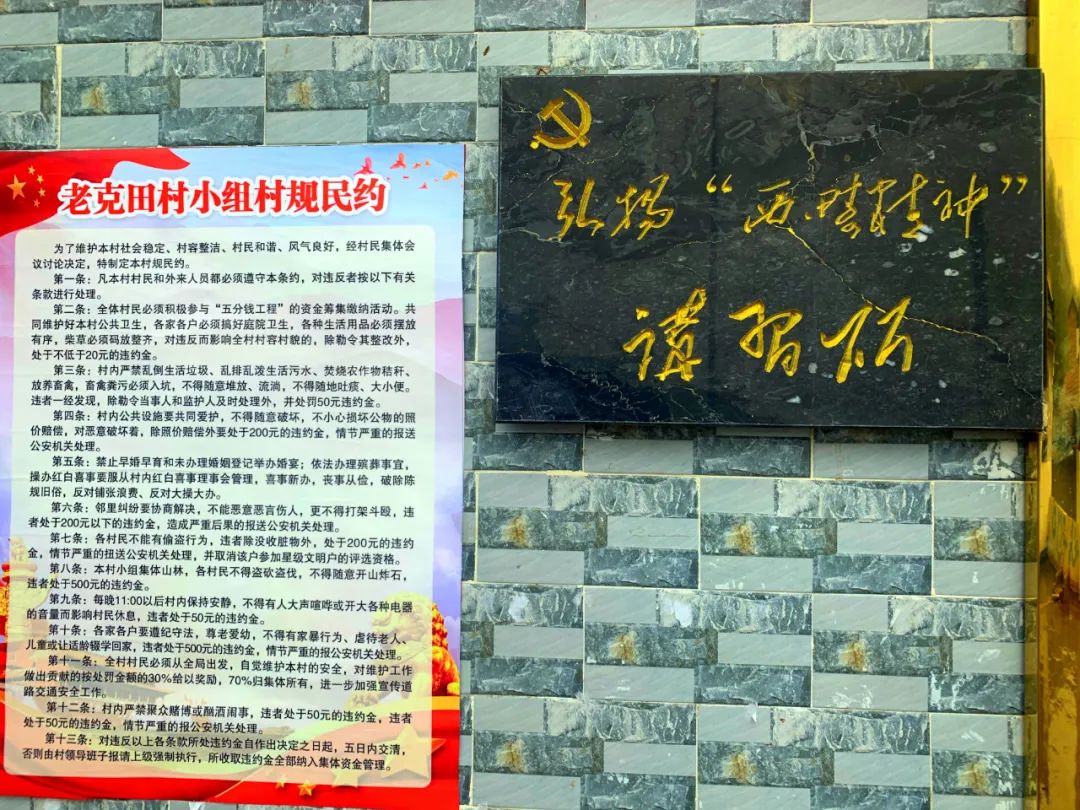 老克田村小组村规民约
为了维护本村社会稳定、村容整洁、村民和谐、风气良好，经村民集体会
议讨论决定，特制定本村规民约。
第一条：凡本村村民和外来人员都必须遵守本条约，对违反者按以下有关
条款进行处理。
第二条：全体村民必须积极参与“五分钱工程”的资金筹集缴纳活动。共
同维护好本村公共卫生，各家各户必须搞好庭院卫生，各种生活用品必须摆放
有序，柴草必须码放整齐，对违反而影响全村村容村貌的，除勒令其整改外，
处于不低于20元的违约金。
第三条：村内严禁乱倒生活垃圾、乱排乱泼生活污水、焚烧农作物秸秆、
放养畜禽，畜禽粪污必须入坑，不得随意堆放、流淌，不得随地吐痰、大小便。
违者一经发现，除勒令当事人和监护人及时处理外，并处罚50元违约金。
第四条：村内公共设施要共同爱护，不得随意破坏，不小心损坏公物的照
价赔偿，对恶意破坏着，除照价赔偿外要处于200元的违约金，情节严重的报送
公安机关处理。
第五条：禁止早婚早育和未办理婚姻登记举办婚宴；依法办理殡葬事宜，
操办红白喜事要服从村内红白喜事理事会管理，喜事新办，丧事从俭，破除陈
规旧俗，反对铺张浪费、反对大操大办。
第六条：邻里纠纷要协商解决，不能恶意恶言伤人，更不得打架斗殴，违
者处于200元以下的违约金，造成严重后果的报送公安机关处理。
第七条：各村民不能有偷盗行为，违者除没收脏物外，处于200元的违约
金，情节严重的扭送公安机关处理，并取消该户参加星级文明户的评选资格。
第八条：本村小组集体山林，各村民不得盗砍盗伐，不得随意开山炸石，
违者处于500元的违约金。
第九条：每晚11:00以后村内保持安静，不得有人大声喧哗或开大各种电器
的音量而影响村民休息，违者处于50元的违约金。
第十条：各家各户要遵纪守法，尊老爱幼，不得有家暴行为、虐待老人、
儿童或让适龄辍学回家，违者处于500元的违约金，情节严重的报公安机关处理。
第十一条：全村村民必须从全局出发，自觉维护本村的安全，对维护工作
做出贡献的按处罚金额的30%给以奖励，70%归集体所有，进一步加强宣传道
路交通安全工作。
第十二条：村内严禁聚众赌博或酗酒闹事，违者处于50元的违约金，违者
处于50元的违约金，情节严重的报公安机关处理。
第十三条：对违反以上各条款所处违约金自作出决定之日起，五日内交清，
否则由村领导班子报请上级强制执行，所收取违约金全部纳入集体资金管理。
弘扬“西畴精神”
讲习所